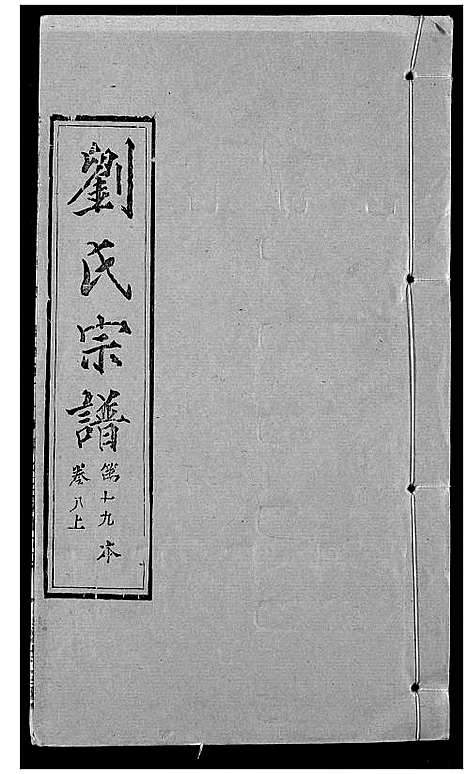 劉氏宗譜
第十九本
卷八上